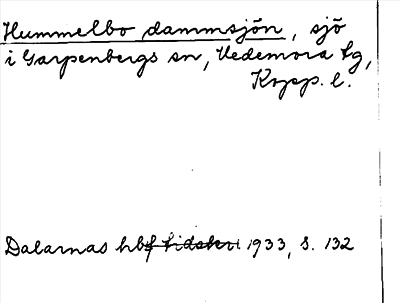 Hummelbo dammsjön, sjö
i Garpenbergs sn, Hedemora tg,
Kopp. l.
Dalarnas hbf tidskr. 1933, s. 132